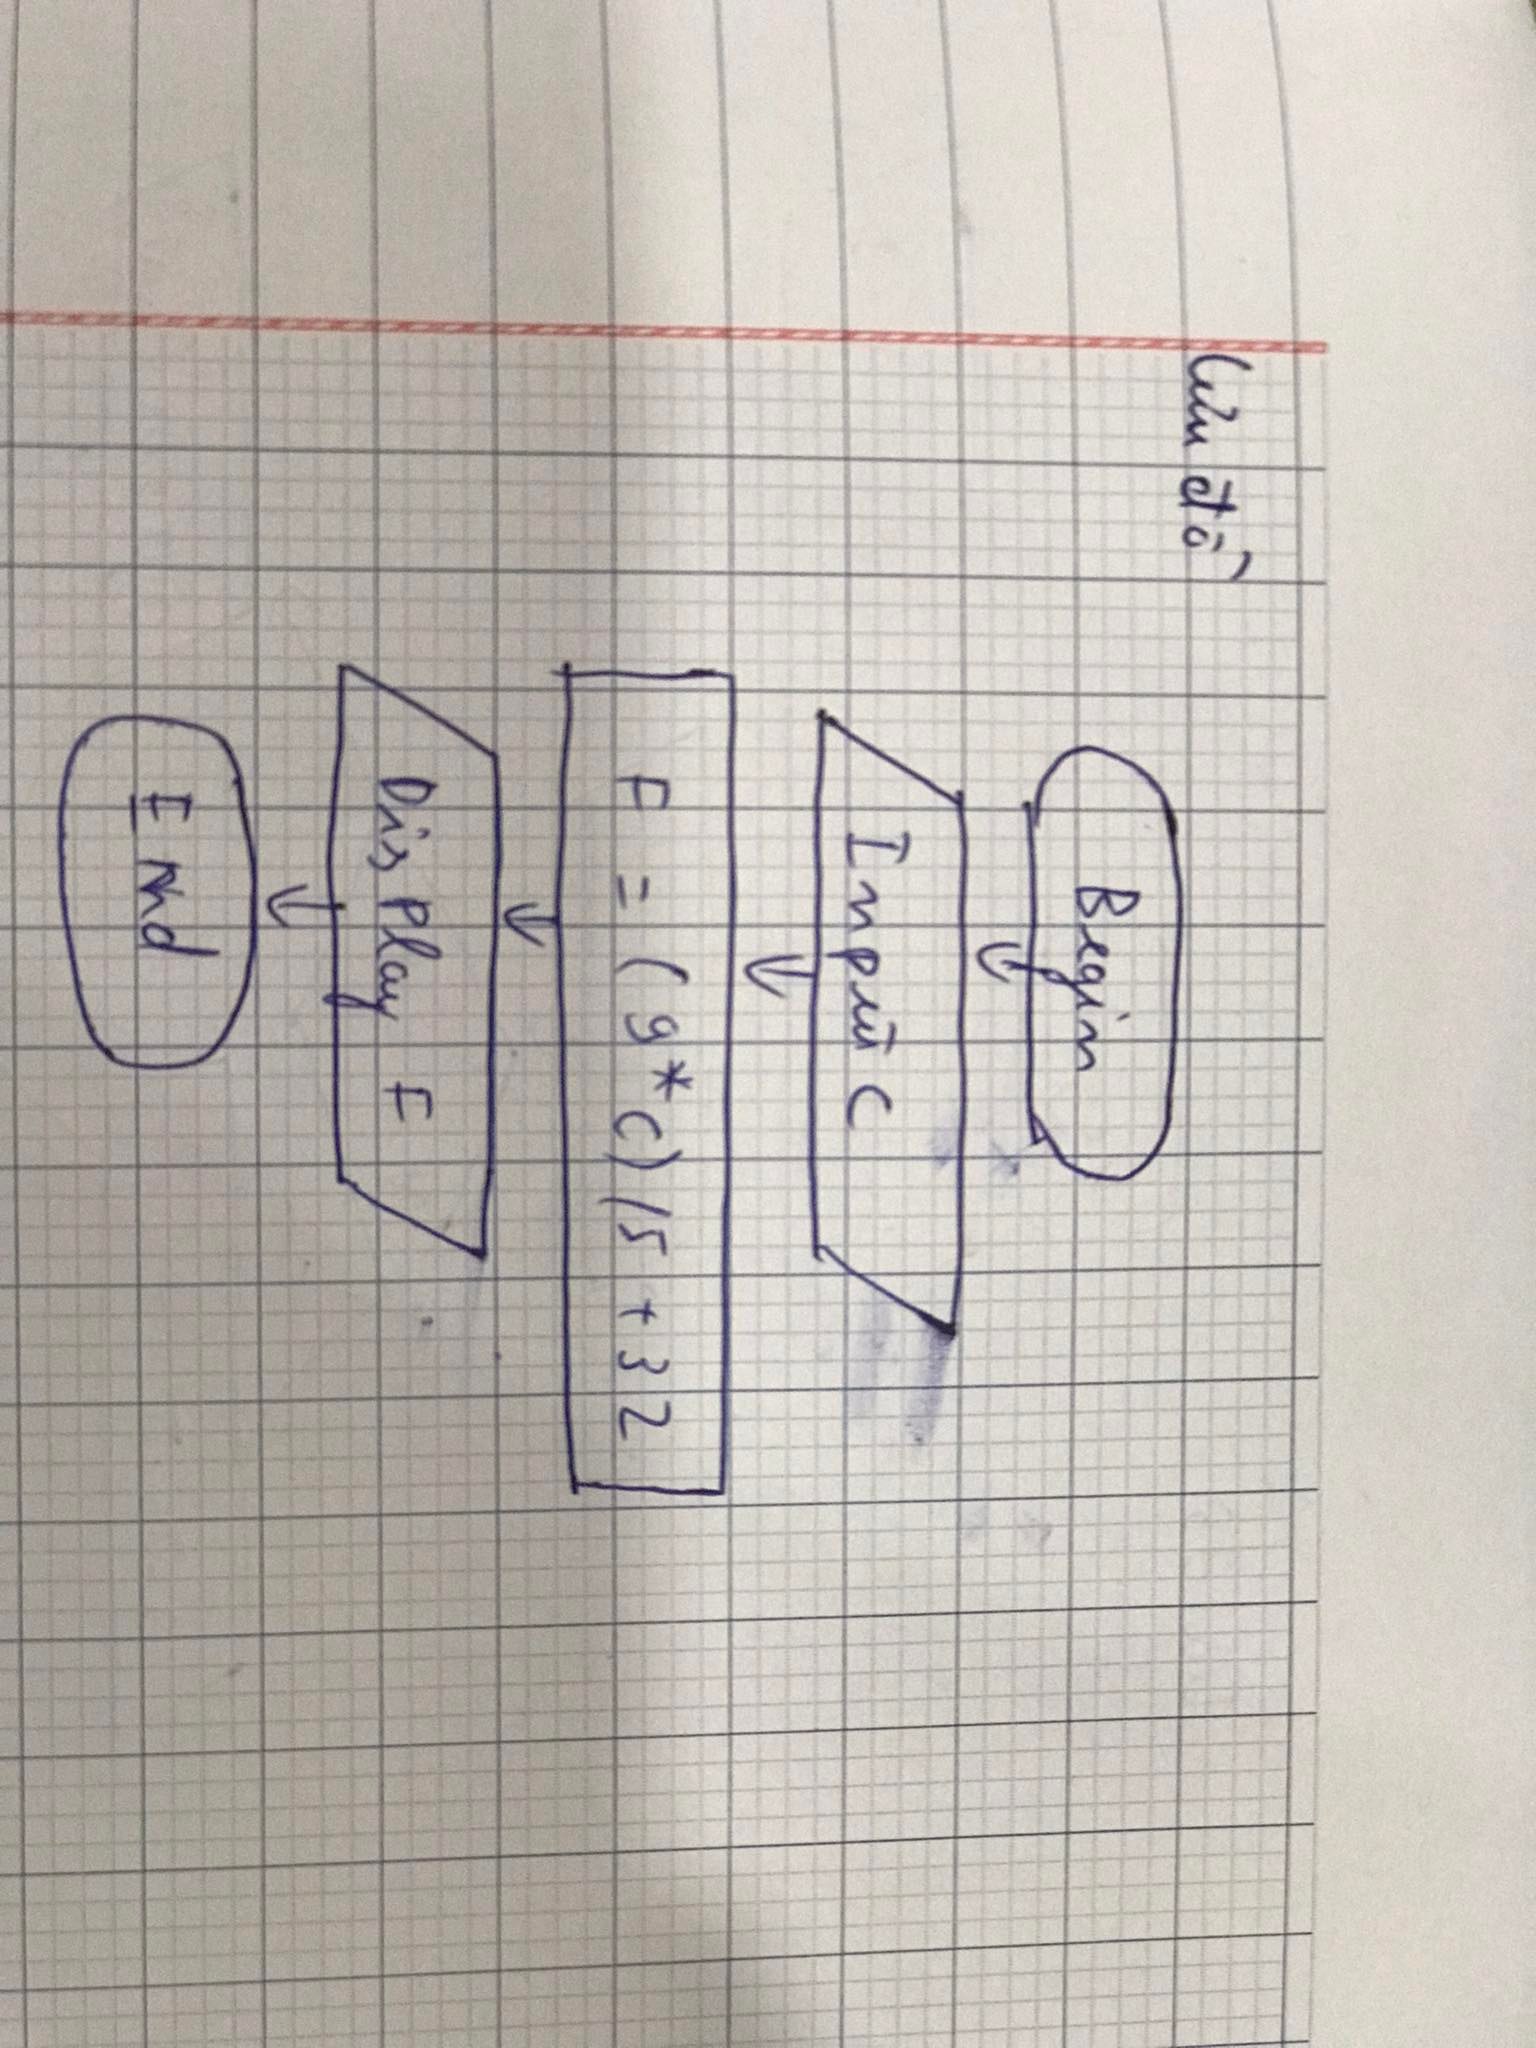 Lưu đồ
Begin
Input C
F = (9*C)/5 + 32
Display F
End